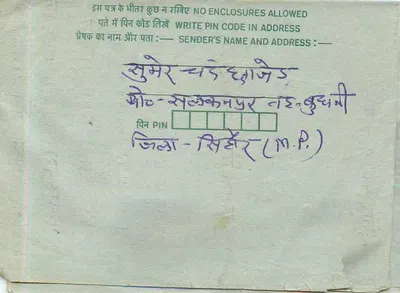 इस पत्र के भीतर कुछ न रखिए NO ENCLOSURES ALLOWED
पते में पिन कोड लिखें WRITE PIN CODE IN ADDRESS
प्रेषक का नाम और पता :— SENDER'S NAME AND ADDRESS :—
सुमेर चंद छाजेड़
पो०-सलकनपुर तह-बुधनी
पिन PIN
जिला - सिहोर (M.P.)